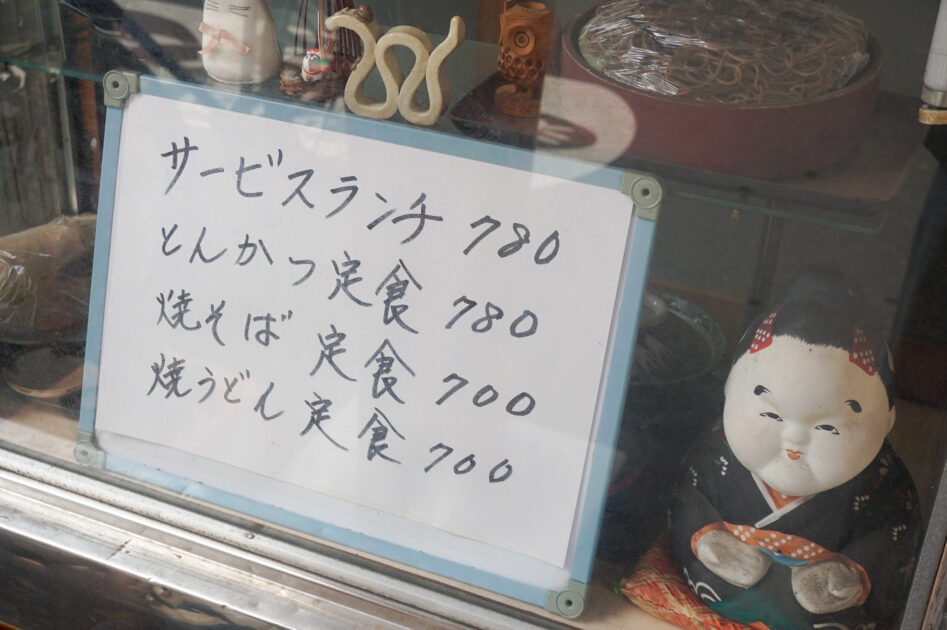 サービスランチ 780
とんかつ定食 780
焼そば定食 700
焼うどん定食 700